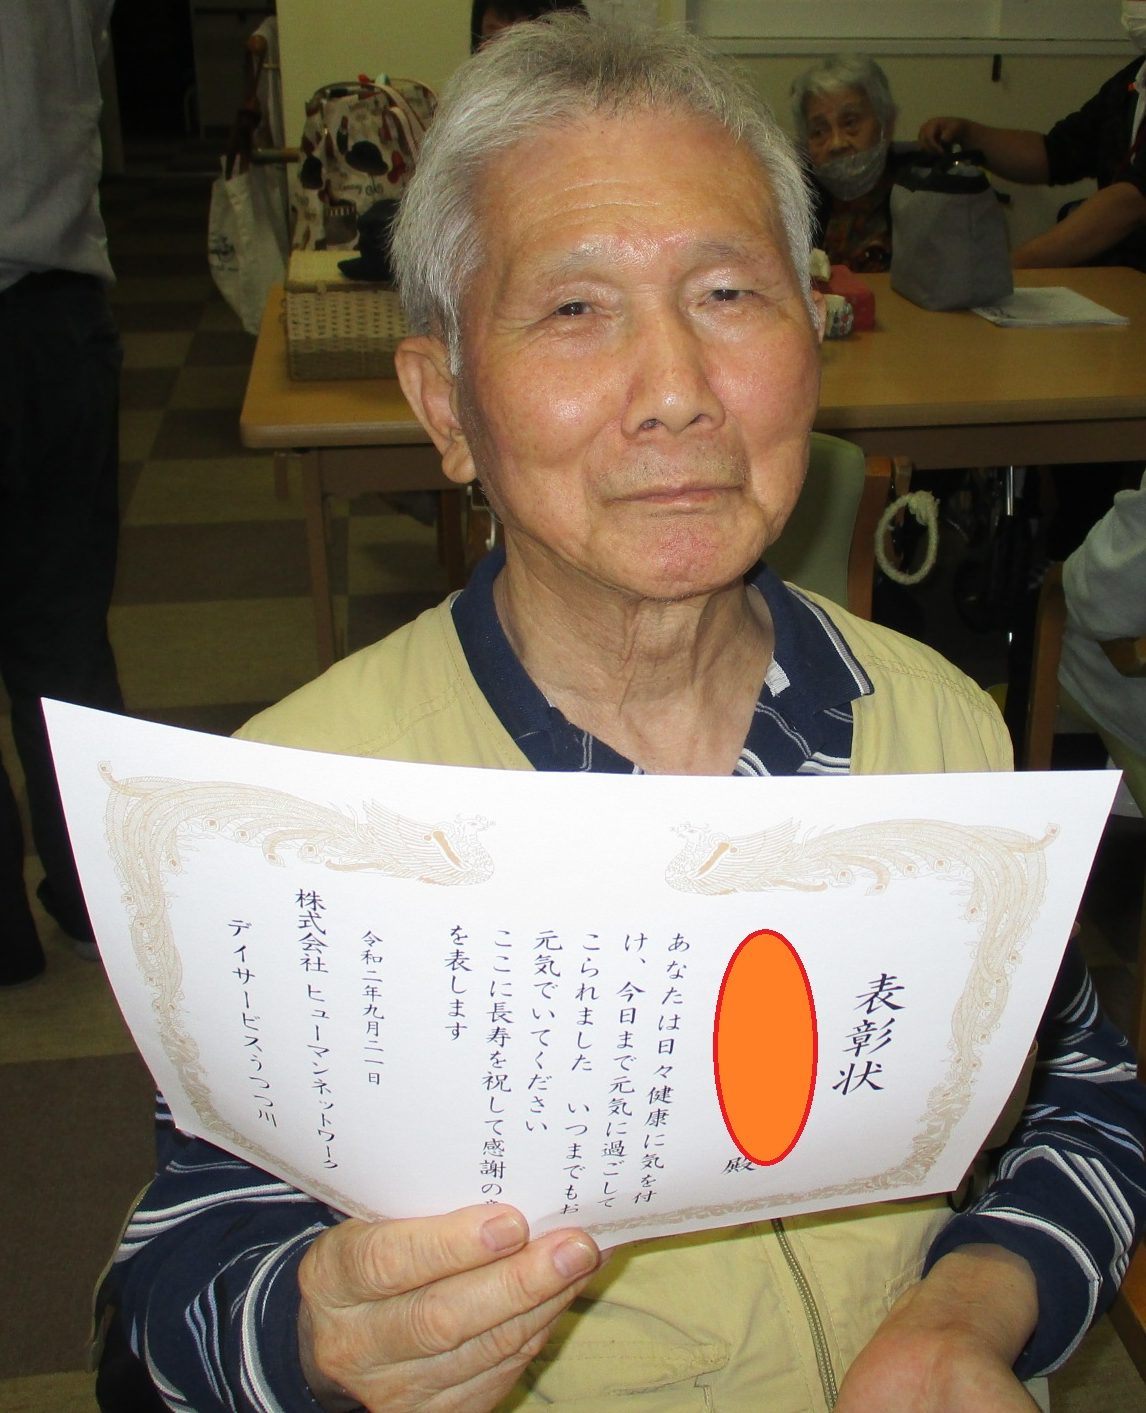 表彰状
殿
あなたは日々健康に気を付
け、今日まで元気に過ごして
こられました　いつまでもお
元気でいてください
ここに長寿を祝して感謝の
を表します
令和二年九月二一日
株式会社 ヒューマンネットワーク
デイサービスうつつ川